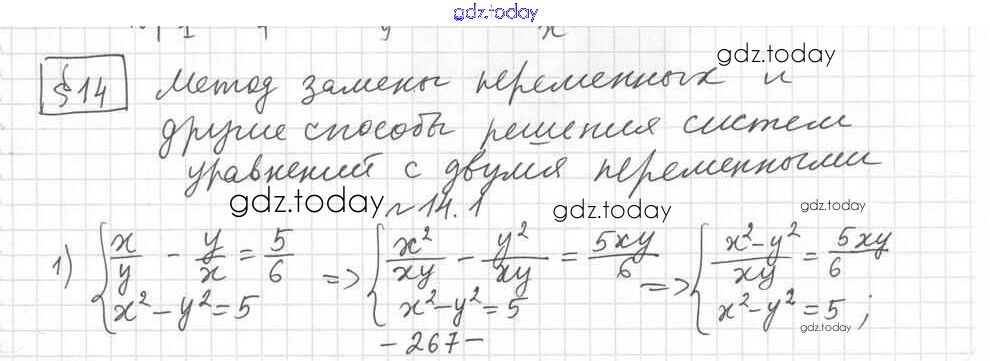 gdz.today
§14 Метод замены переменных и
gdz.today
другие способы решения систем
уравнений с двумя переменными
gdz.today №14.1 gdz.today gdz.today
1) { x/y - y/x = 5/6 => { x²/xy - y²/xy = 5xy/6 => { (x²-y²)/xy = 5xy/6
x² - y² = 5 x² - y² = 5 x² - y² = 5 ;
gdz.today
- 267 -